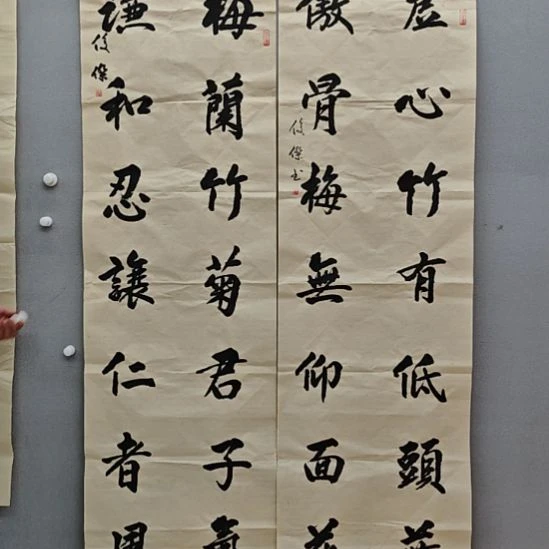 虛心竹有低頭葉
傲骨梅無仰面花
俊傑书
梅蘭竹菊君子氣
謙和忍讓仁者風
俊傑